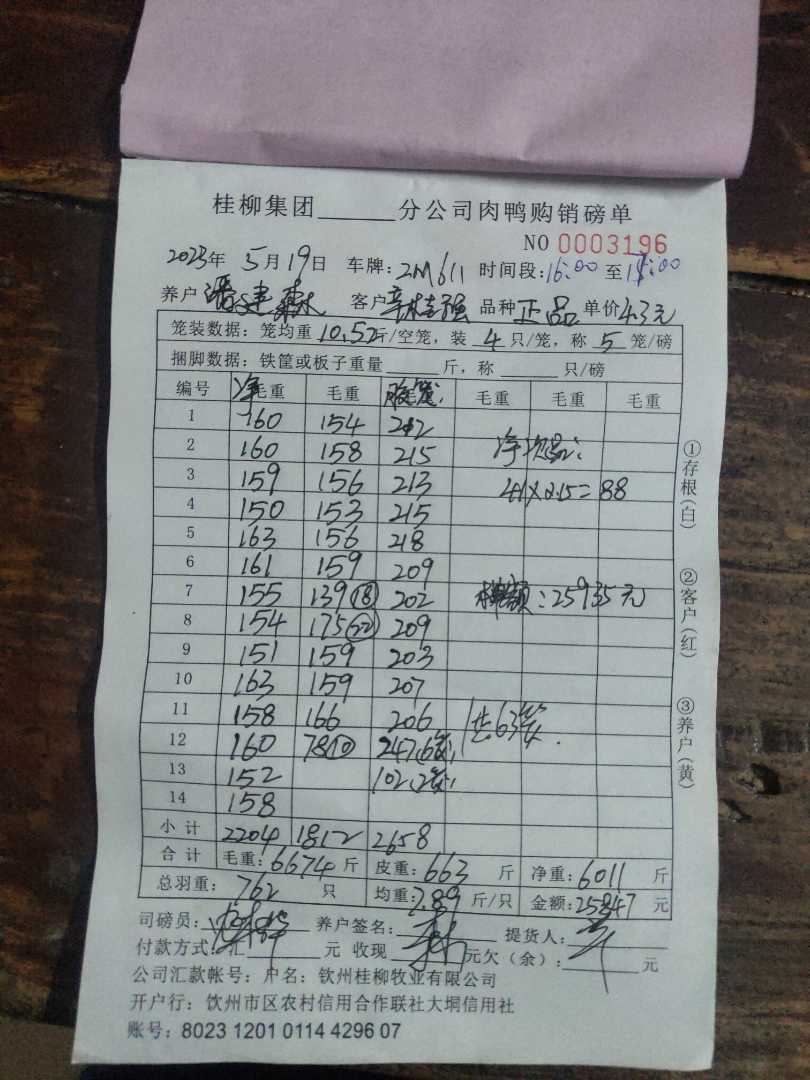 桂柳集团______分公司肉鸭购销磅单
NO 0003196
2023年 5月19日 车牌:2M611 时间段:16:00至18:00
养户 潘建森 客户 品种 正品 单价4.3元
笼装数据:笼均重 10.52斤/空笼,装 4 只/笼,称 5 笼/磅
捆脚数据:铁筐或板子重量______斤,称______只/磅
编号 净毛重 毛重 毛重 毛重 毛重
1 160 154 212
2 160 158 215 净次品:
3 159 156 213 41×2.15=88
4 150 153 215
5 163 156 218
6 161 159 209
7 155 139(18) 202 总额:25935元
8 154 175(22) 209
9 151 159 203
10 163 159 207
11 158 166 206 共63笼
12 160 78(10) 247(6笼)
13 152 102(2笼)
14 158
小计 2204 1812 2658
合计 毛重:6674斤 皮重:663斤 净重:6011斤
总羽重:762只 均重:7.89斤/只 金额:25847元
司磅员: 养户签名: 提货人:
付款方式:汇______元 收现______元欠(余):______元
公司汇款帐号:户名:钦州桂柳牧业有限公司
开户行:饮州市区农村信用合作联社大垌信用社
账号:8023 1201 0114 4296 07
①存根(白)
②客户(红)
③养户(黄)